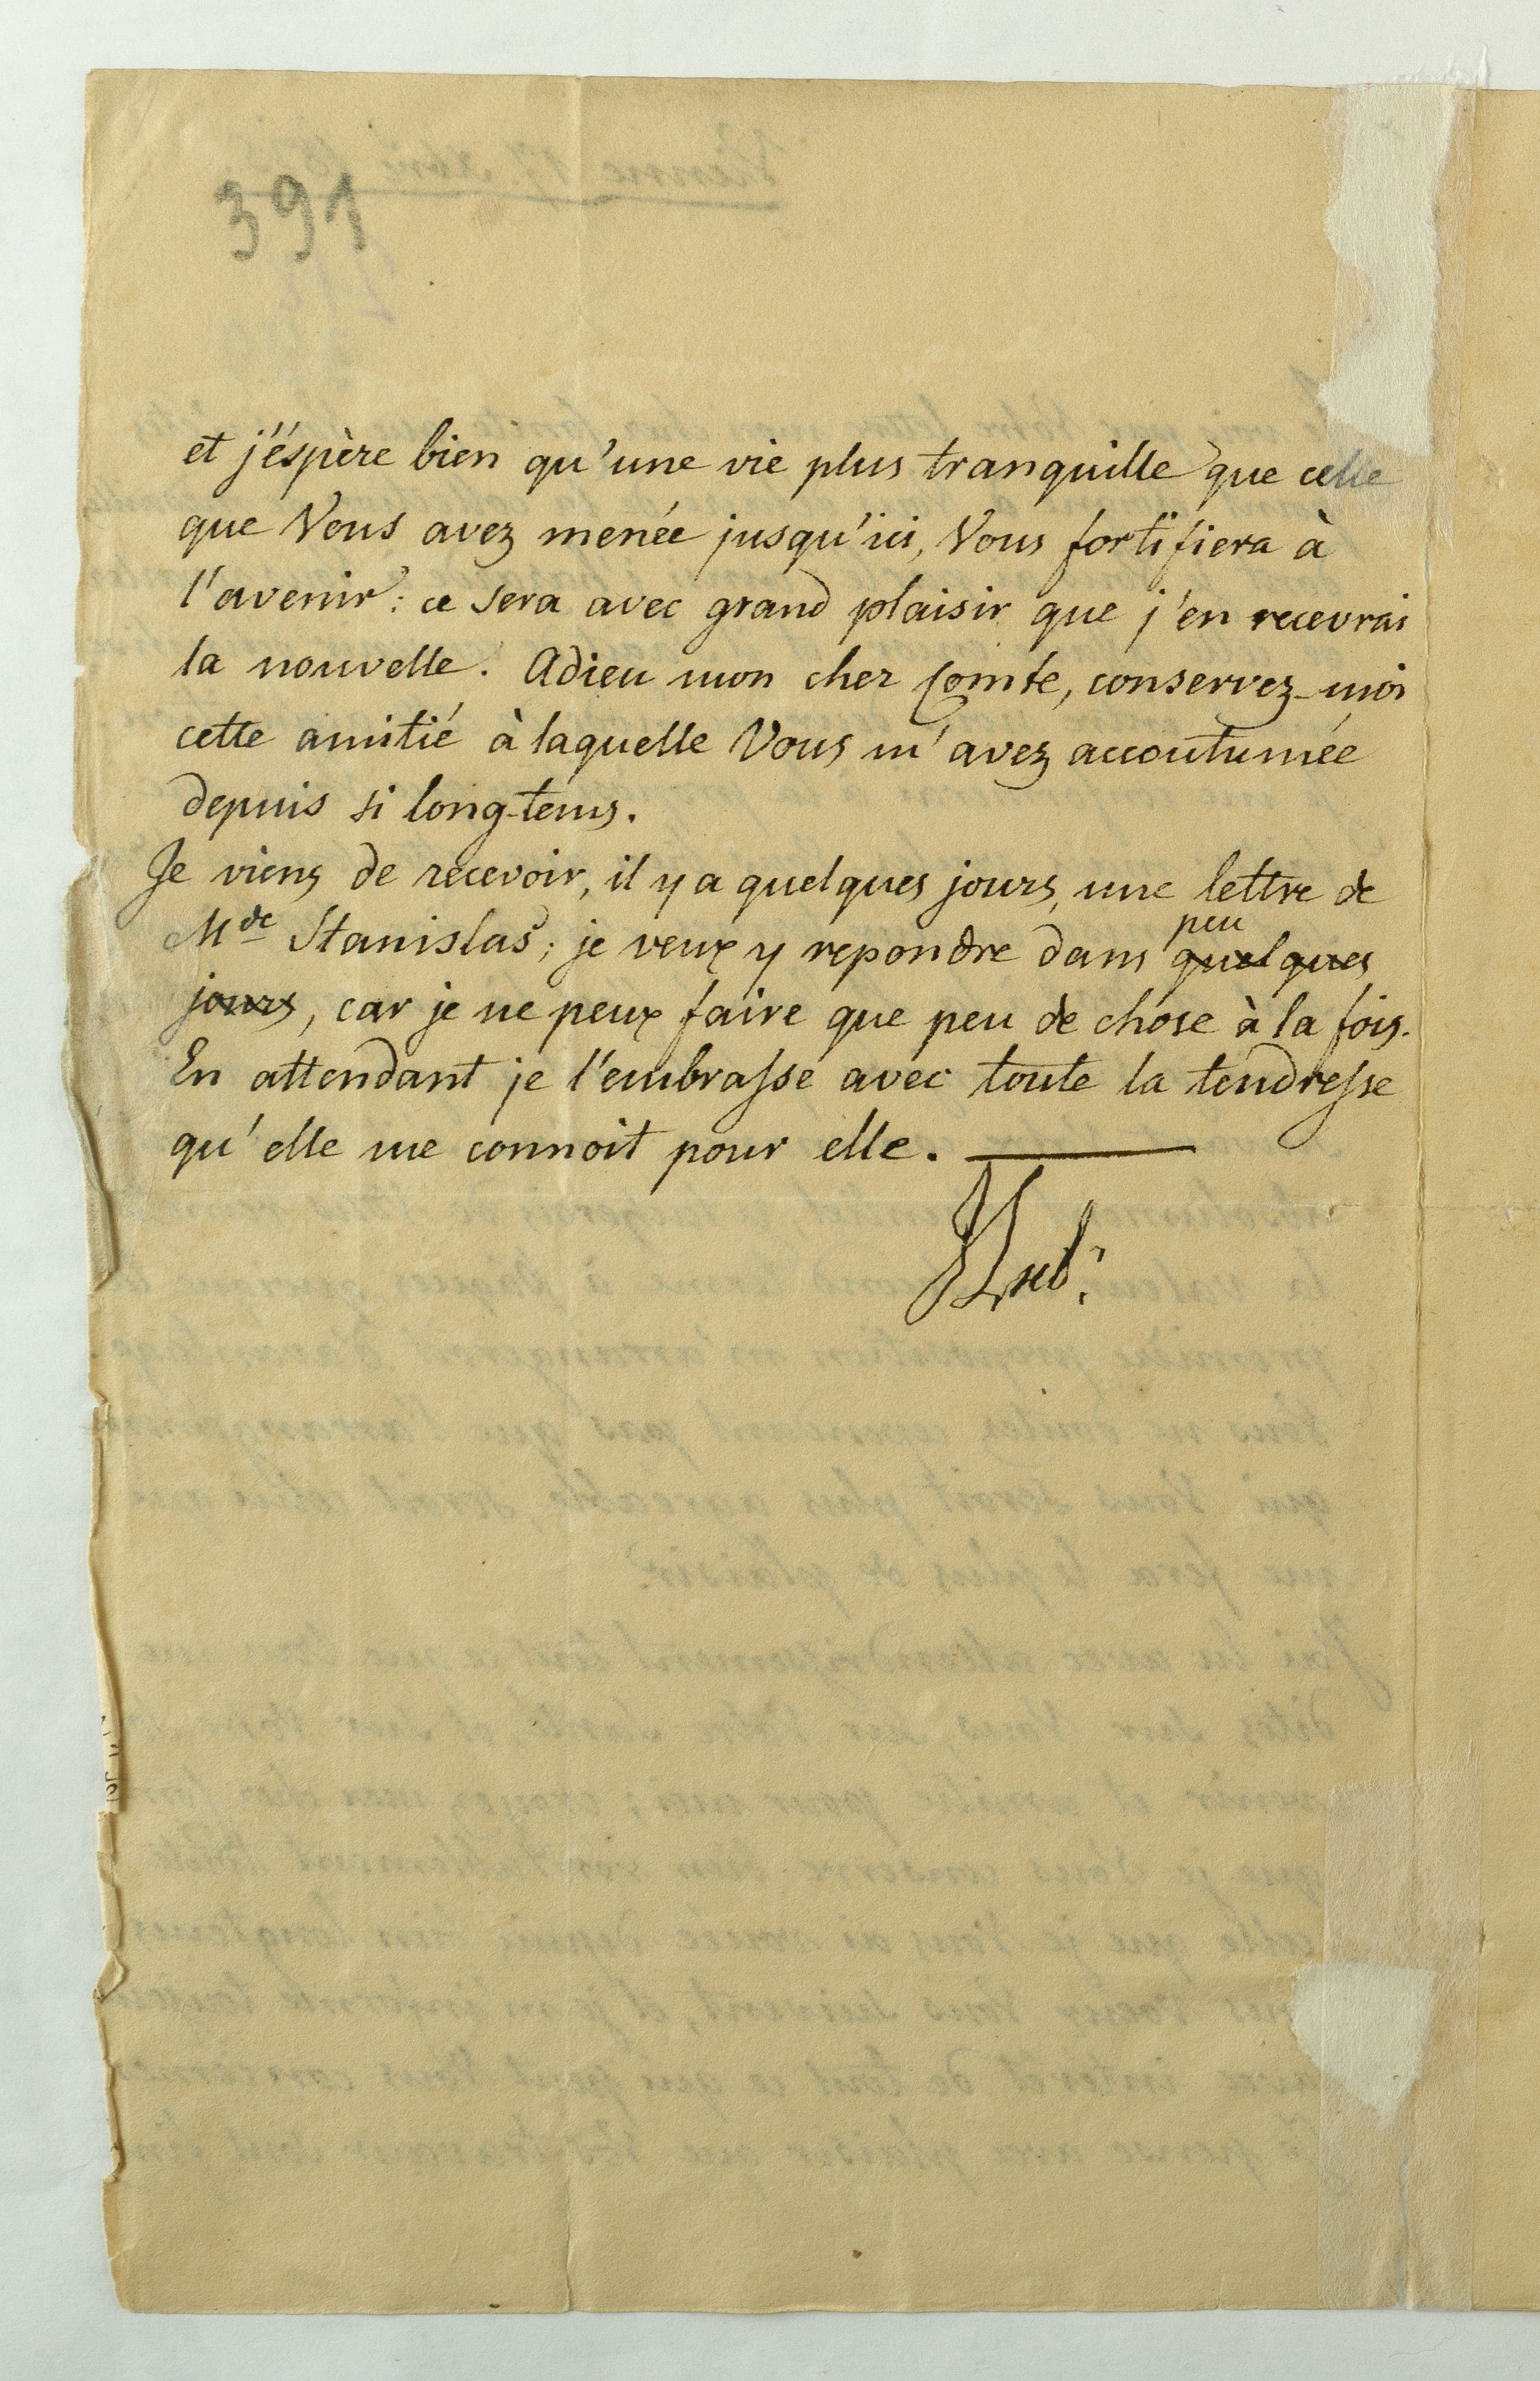 391
et j'éspère bien qu'une vie plus tranquille que celle
que Vous avez menée jusqu'ici, Vous fortifiera à
l'avenir: ce sera avec grand plaisir que j'en recevrai
la nouvelle. Adieu mon cher Comte, conservez-moi
cette amitié à laquelle Vous m'avez accoutumée
depuis si long-tems.
Je viens de recevoir, il y a quelques jours, une lettre de
Mde Stanislas; je veux y repondre dans peu quelques
jours, car je ne peux faire que peu de chose à la fois.
En attendant je l'embrasse avec toute la tendresse
qu'elle me connoit pour elle.